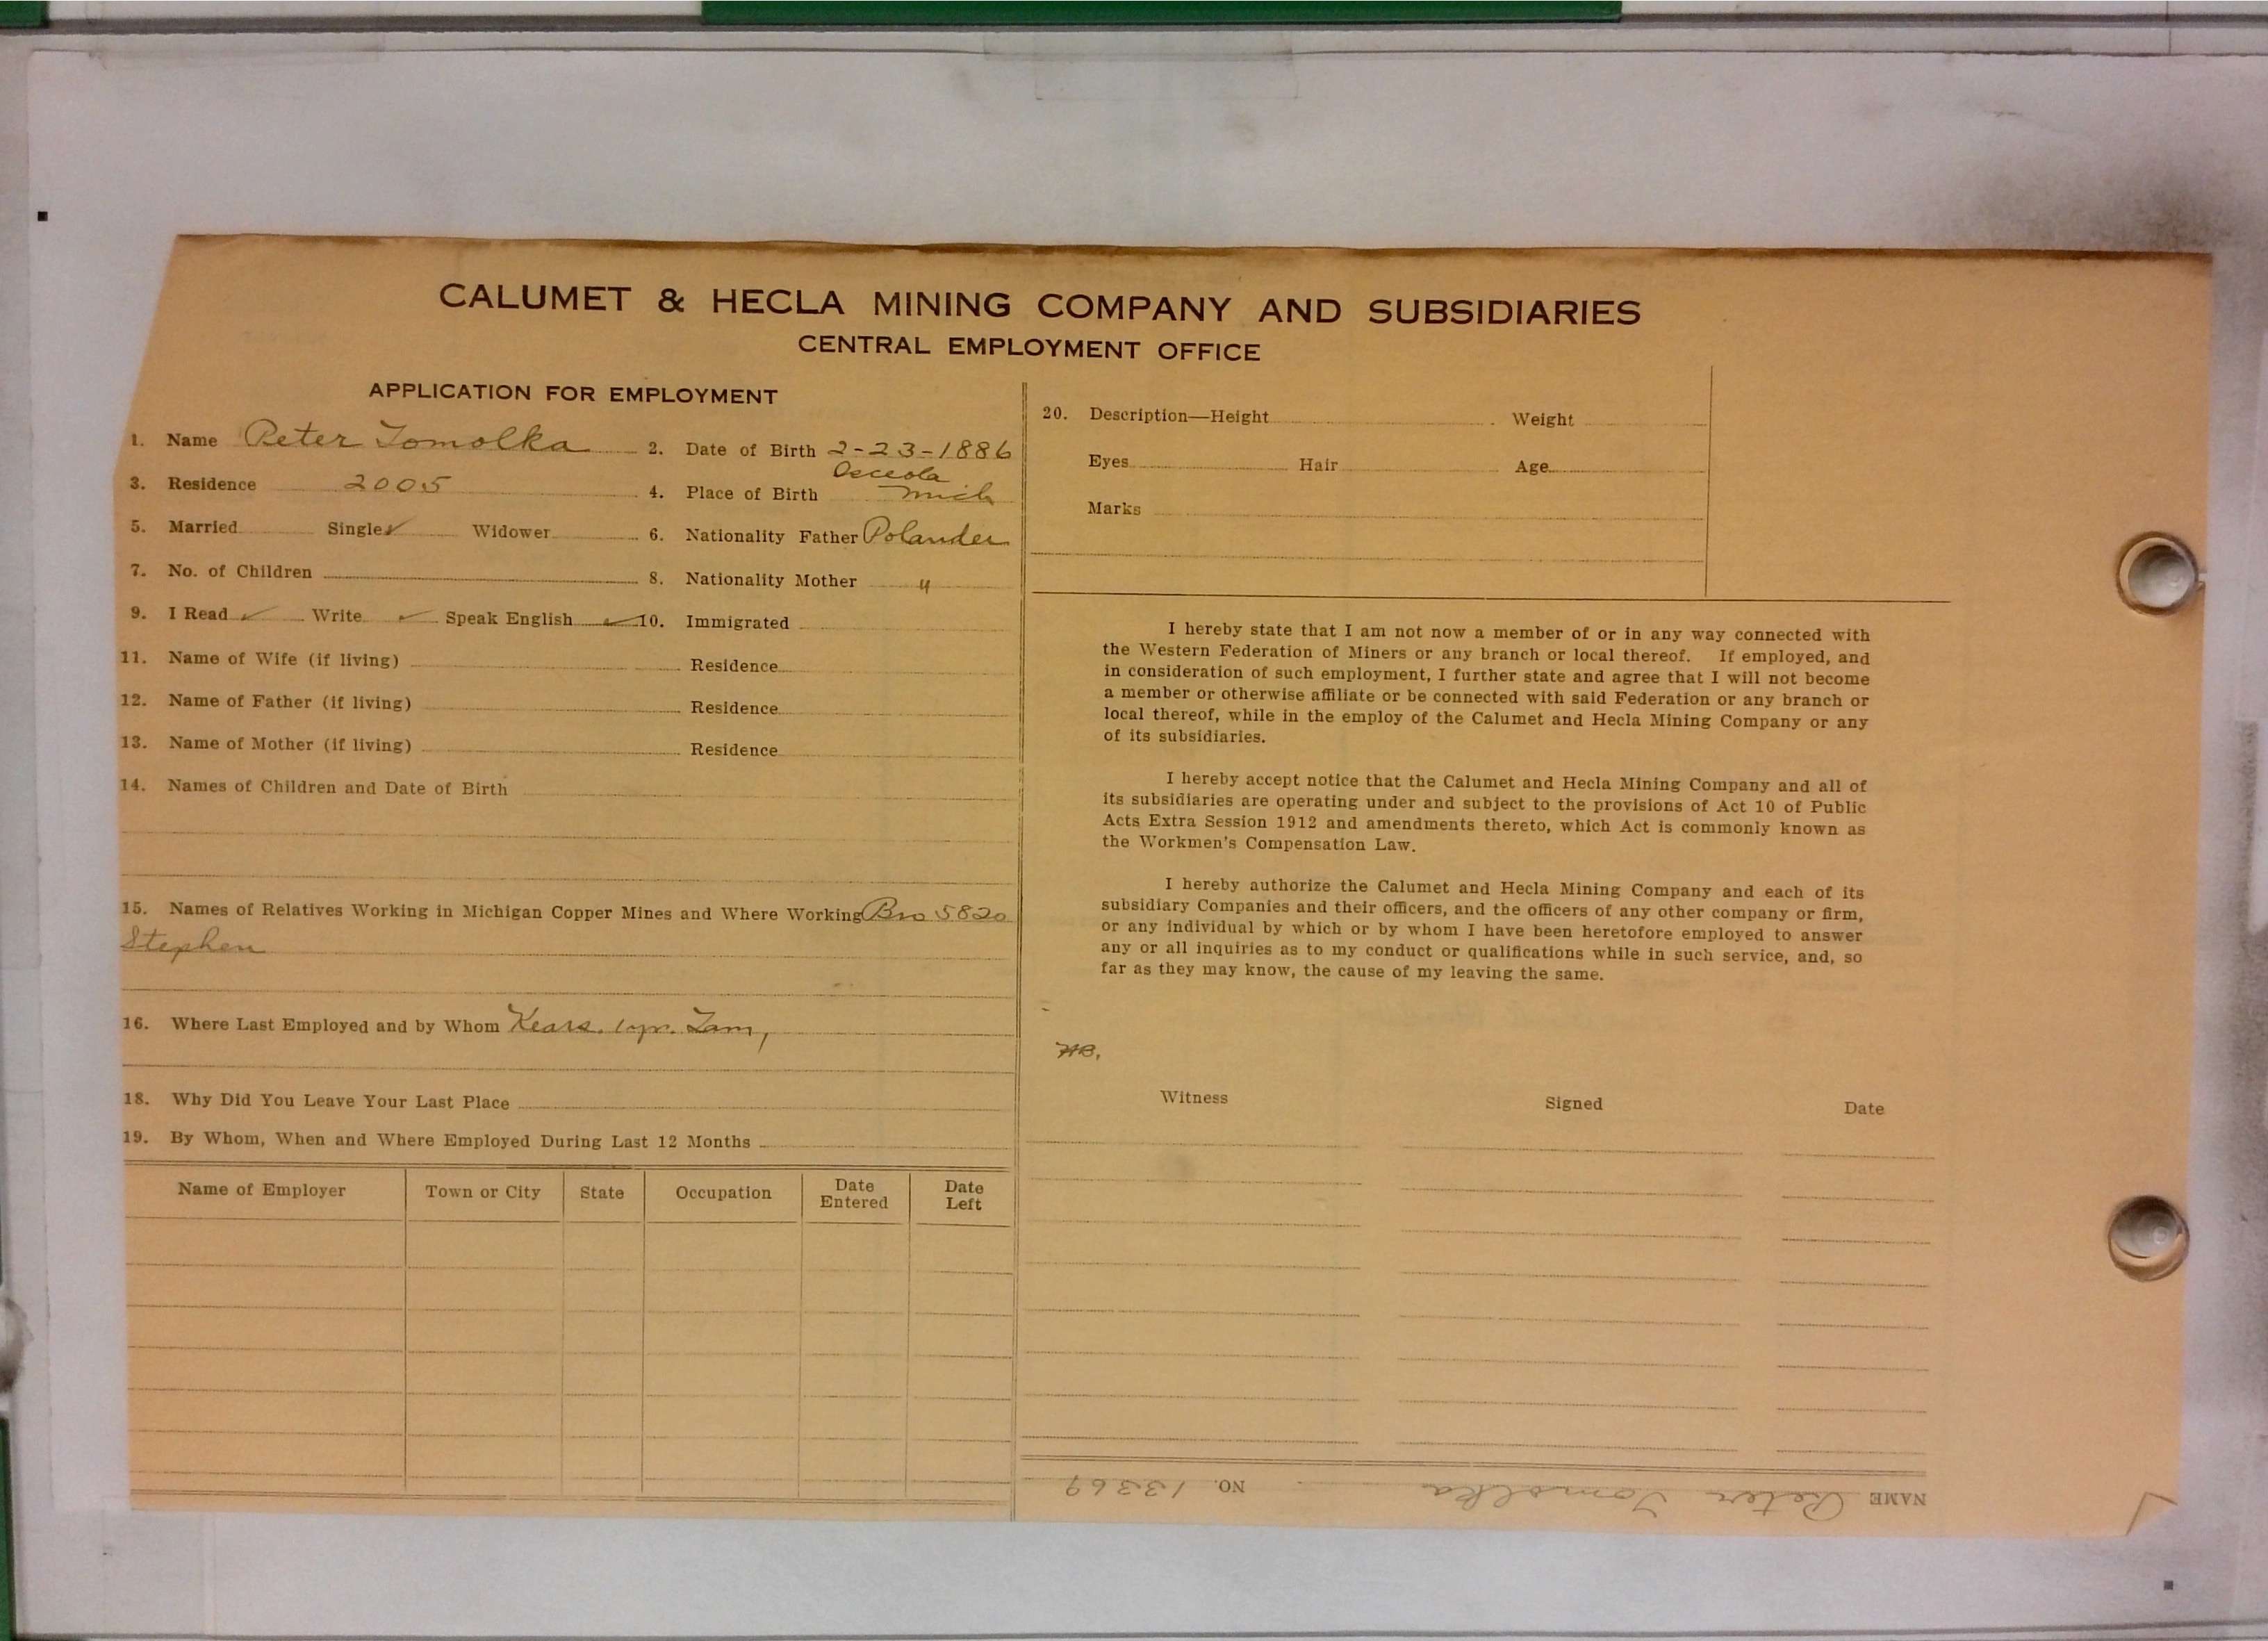 CALUMET & HECLA MINING COMPANY AND SUBSIDIARIES
CENTRAL EMPLOYMENT OFFICE
APPLICATION FOR EMPLOYMENT
1. Name Peter Tomolka 2. Date of Birth 2-23-1886
3. Residence 2005 4. Place of Birth Osceola Mich
5. Married Single ✓ Widower 6. Nationality Father Polander
7. No. of Children 8. Nationality Mother "
9. I Read ✓ Write ✓ Speak English ✓ 10. Immigrated
11. Name of Wife (if living) Residence
12. Name of Father (if living) Residence
13. Name of Mother (if living) Residence
14. Names of Children and Date of Birth
15. Names of Relatives Working in Michigan Copper Mines and Where Working Bro 5820
Stephen
16. Where Last Employed and by Whom Kears. 1 yr. Tam,
18. Why Did You Leave Your Last Place
19. By Whom, When and Where Employed During Last 12 Months
Name of Employer Town or City State Occupation Date Entered Date Left
20. Description—Height Weight
Eyes Hair Age
Marks
I hereby state that I am not now a member of or in any way connected with
the Western Federation of Miners or any branch or local thereof. If employed, and
in consideration of such employment, I further state and agree that I will not become
a member or otherwise affiliate or be connected with said Federation or any branch or
local thereof, while in the employ of the Calumet and Hecla Mining Company or any
of its subsidiaries.
I hereby accept notice that the Calumet and Hecla Mining Company and all of
its subsidiaries are operating under and subject to the provisions of Act 10 of Public
Acts Extra Session 1912 and amendments thereto, which Act is commonly known as
the Workmen's Compensation Law.
I hereby authorize the Calumet and Hecla Mining Company and each of its
subsidiary Companies and their officers, and the officers of any other company or firm,
or any individual by which or by whom I have been heretofore employed to answer
any or all inquiries as to my conduct or qualifications while in such service, and, so
far as they may know, the cause of my leaving the same.
Witness Signed Date
NAME Peter Tomolka NO. 13369